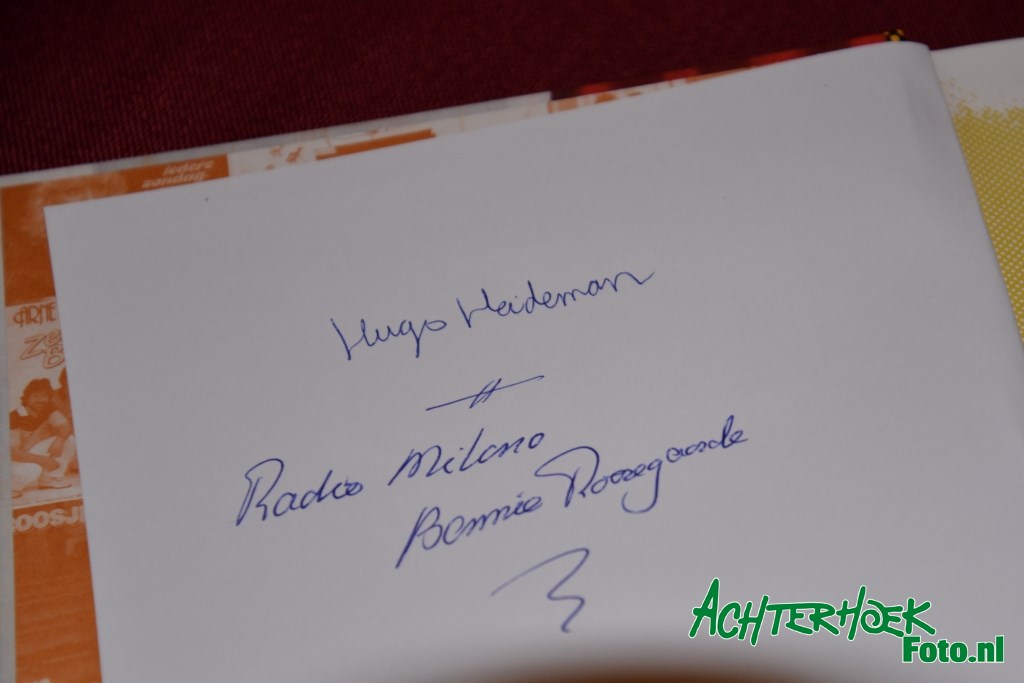 iedere
zondag
ARNE
OOSJE
Hugo Heideman
Radio Milano
Bennie Roosegaarde
ACHTERHOEK
Foto.nl